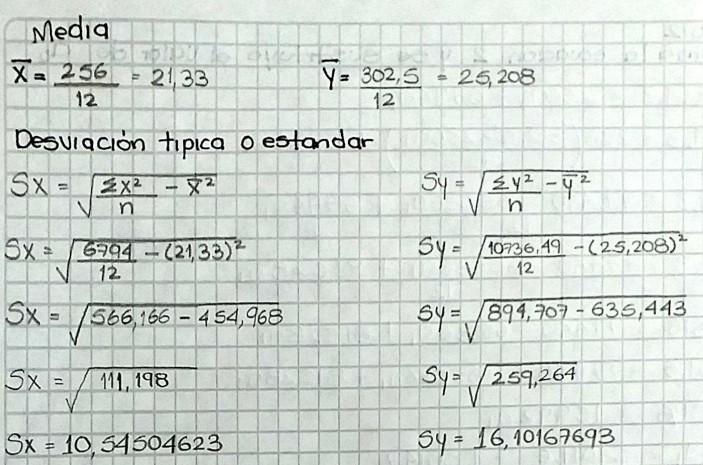 Media
X̄ = 256/12 = 21,33    Ȳ = 302,5/12 = 25,208
Desviación tipica o estandar
Sx = √(Σx²/n - x̄²)    Sy = √(Σy²/n - ȳ²)
Sx = √(6794/12 - (21,33)²)    Sy = √(10736,49/12 - (25,208)²)
Sx = √(566,166 - 454,968)    Sy = √(894,707 - 635,443)
Sx = √(111,198)    Sy = √(259,264)
Sx = 10,54504623    Sy = 16,10167693